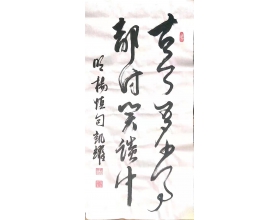 古今多少事
都付笑谈中
明杨慎句凯耀